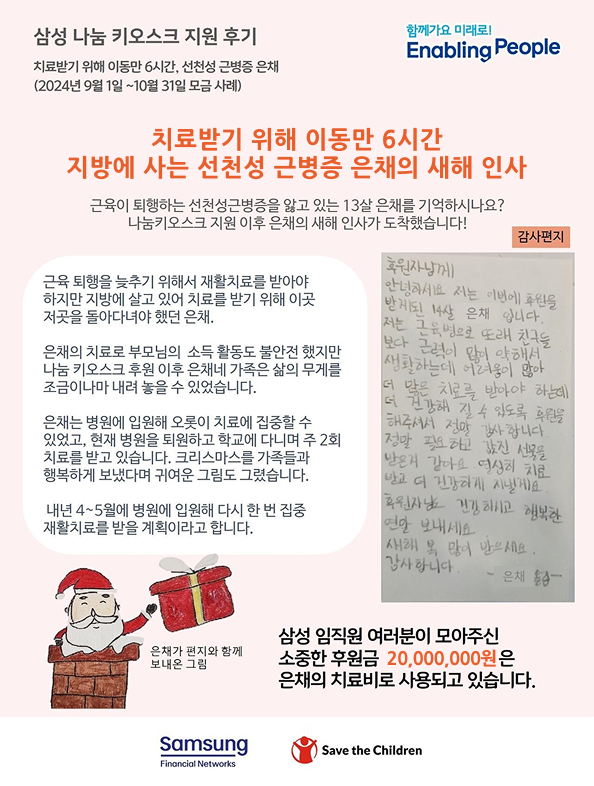 삼성 나눔 키오스크 지원 후기
함께가요 미래로!
Enabling People
치료받기 위해 이동만 6시간, 선천성 근병증 은채
(2024년 9월 1일 ~10월 31일 모금 사례)
치료받기 위해 이동만 6시간
지방에 사는 선천성 근병증 은채의 새해 인사
근육이 퇴행하는 선천성근병증을 앓고 있는 13살 은채를 기억하시나요?
나눔키오스크 지원 이후 은채의 새해 인사가 도착했습니다!
감사편지
근육 퇴행을 늦추기 위해서 재활치료를 받아야
하지만 지방에 살고 있어 치료를 받기 위해 이곳
저곳을 돌아다녀야 했던 은채.
은채의 치료로 부모님의 소득 활동도 불안전 했지만
나눔 키오스크 후원 이후 은채네 가족은 삶의 무게를
조금이나마 내려 놓을 수 있었습니다.
은채는 병원에 입원해 오롯이 치료에 집중할 수
있었고, 현재 병원을 퇴원하고 학교에 다니며 주 2회
치료를 받고 있습니다. 크리스마스를 가족들과
행복하게 보냈다며 귀여운 그림도 그렸습니다.
내년 4~5월에 병원에 입원해 다시 한 번 집중
재활치료를 받을 계획이라고 합니다.
후원자님께
안녕하세요 저는 이번에 후원을
받게된 14살 은채 입니다.
저는 근육병으로 또래 친구들
보다 근력이 많이 약해서
생활하는데 어려움이 많아
더 많은 치료를 받아야 하는데
더 건강해 질 수 있도록 후원을
해주셔서 정말 감사합니다
정말 필요하고 값진 선물을
받은거 같아요 열심히 치료
받고 더 건강하게 지낼게요.
후원자님도 건강하시고 행복한
연말 보내세요.
새해 복 많이 받으세요.
감사합니다.
- 은채 -
은채가 편지와 함께
보내온 그림
삼성 임직원 여러분이 모아주신
소중한 후원금 20,000,000원은
은채의 치료비로 사용되고 있습니다.
Samsung
Financial Networks
Save the Children